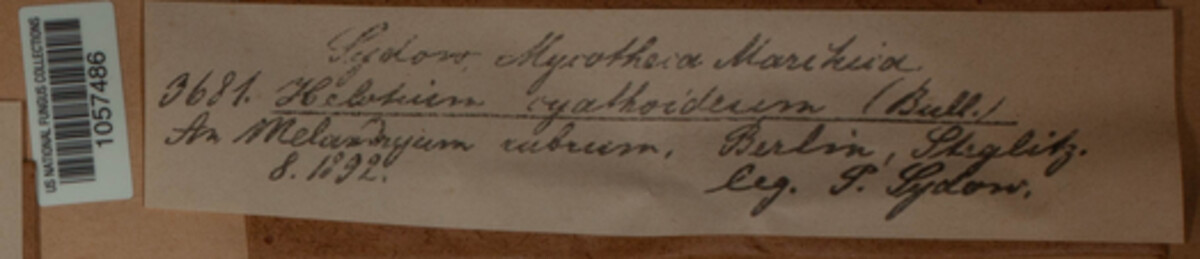 US NATIONAL FUNGUS COLLECTIONS
1057486
Sydow, Mycotheca Marchica
3681. Helotium cyathoideum (Bull.)
An Melandryum rubrum. Berlin, Steglitz.
8. 1892. leg. P. Sydow.